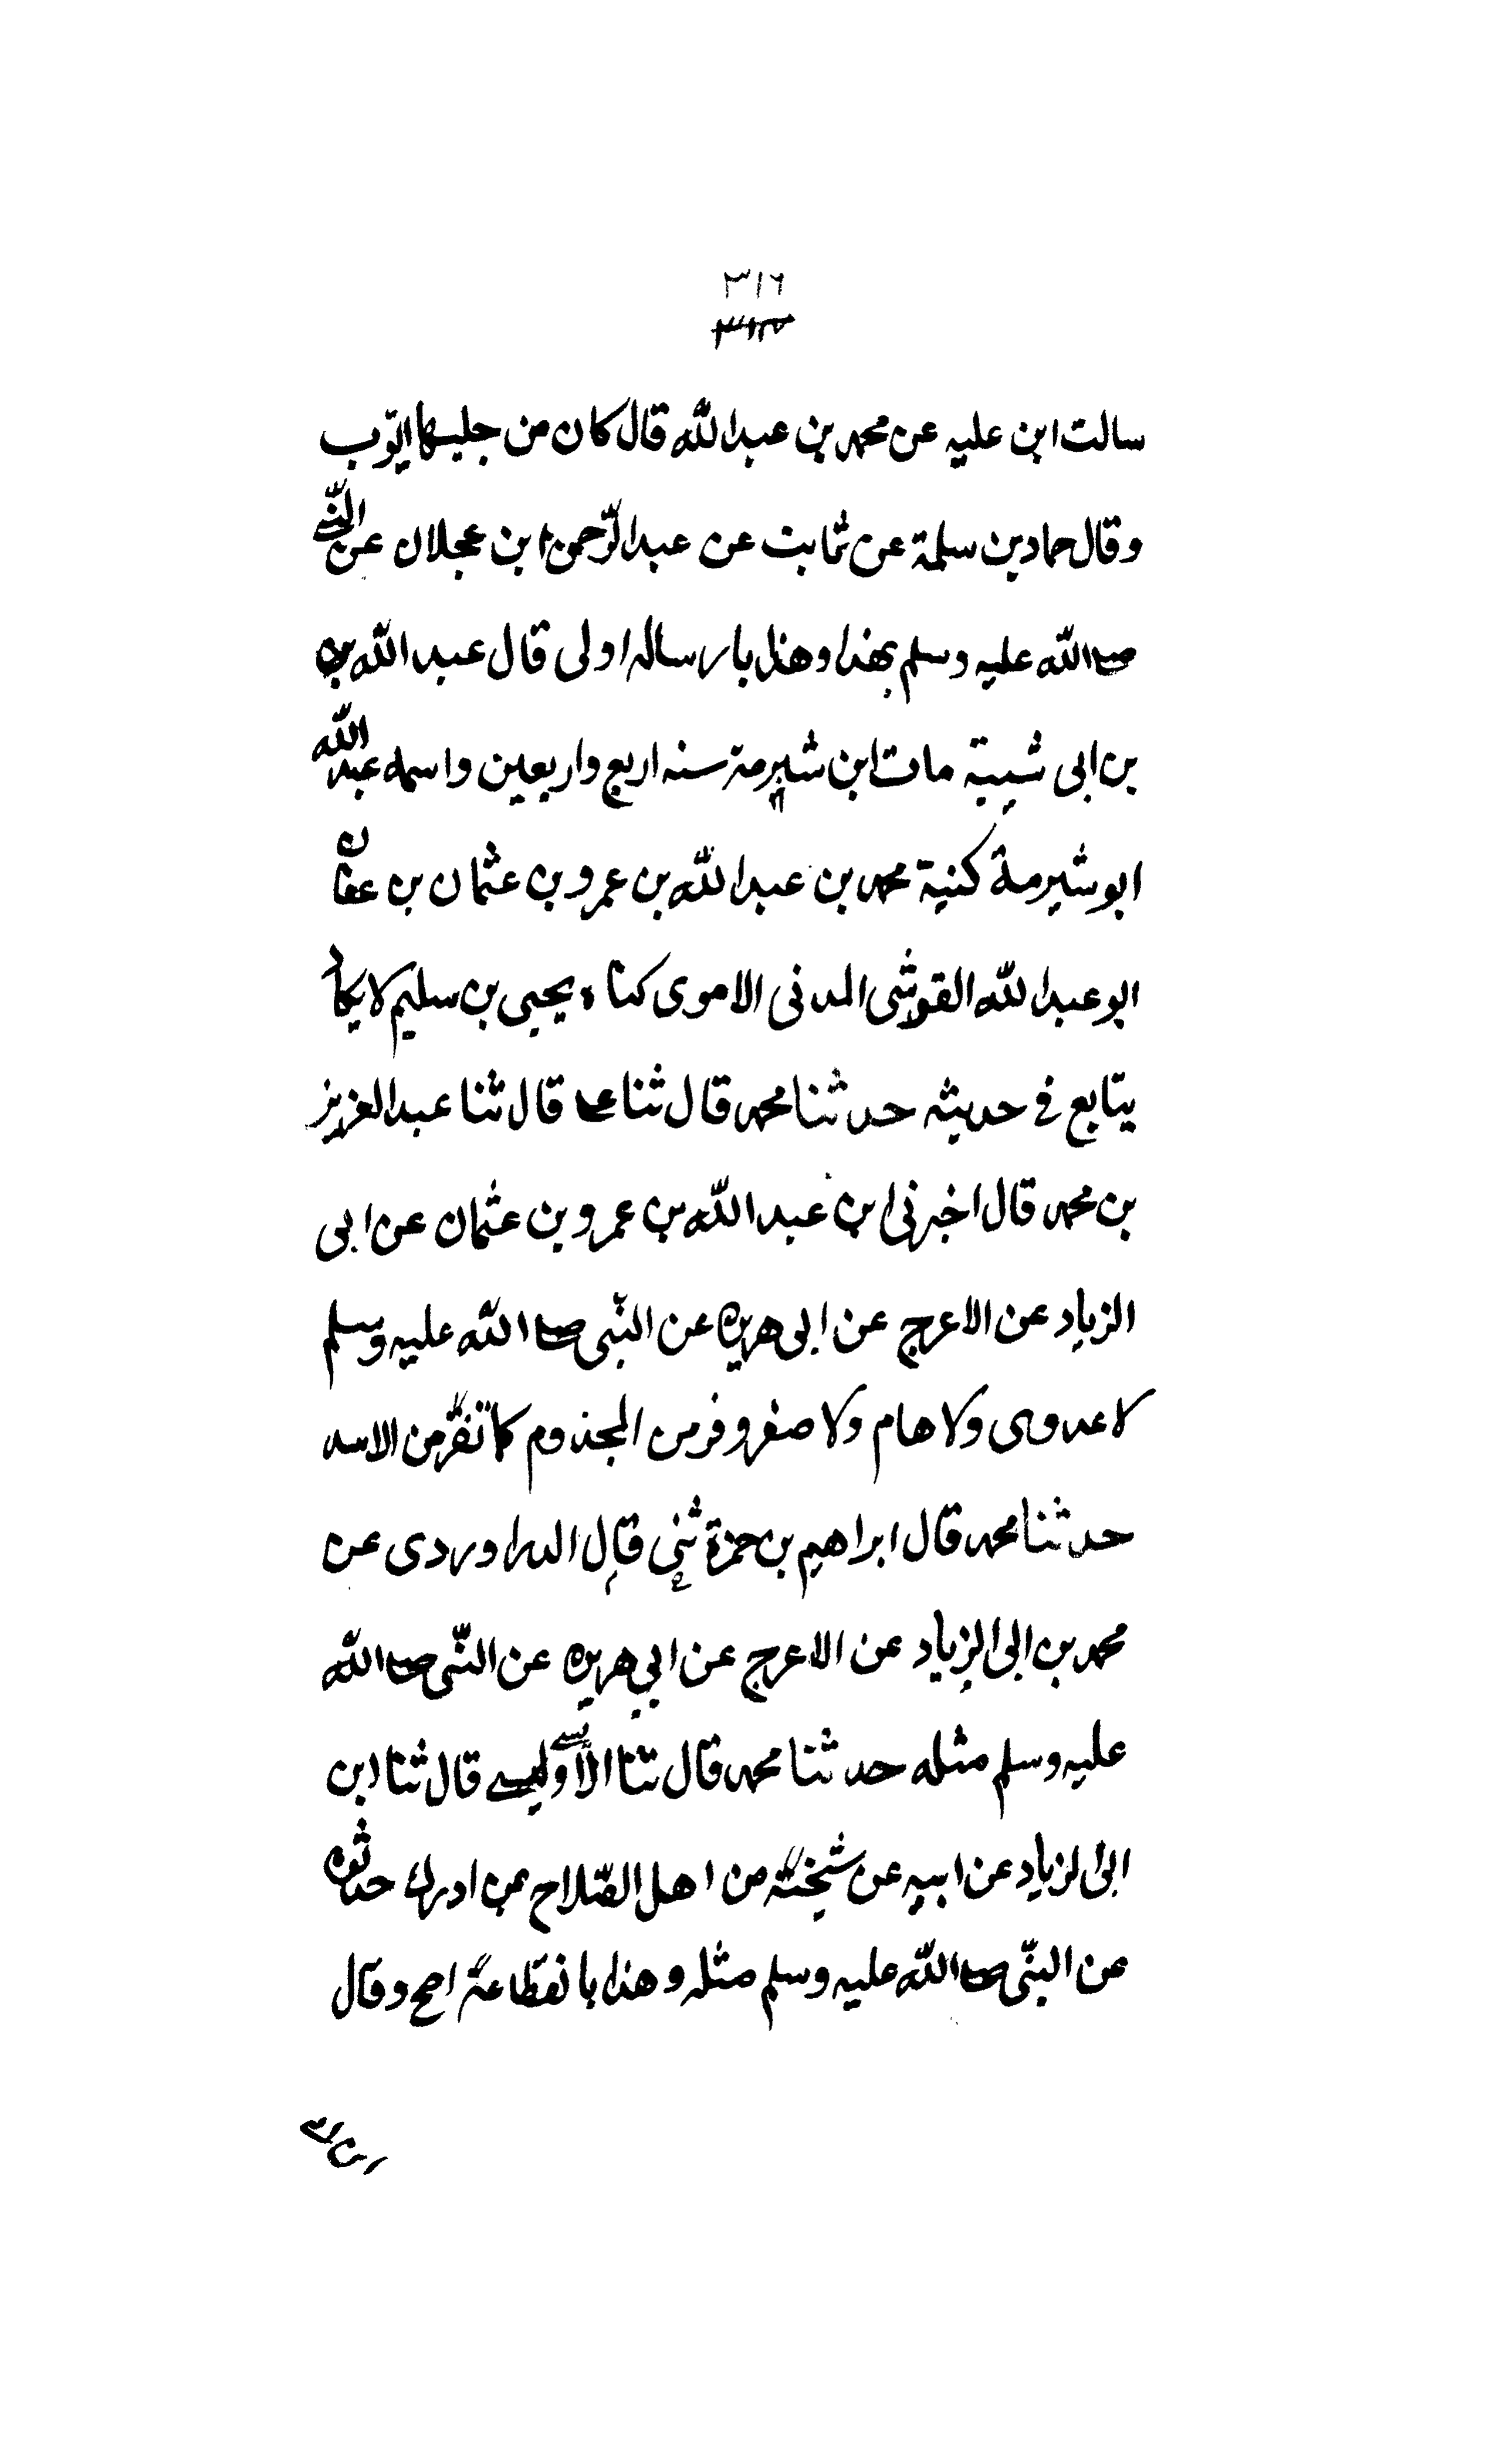 ٣١٦
سالت ابن عليه عن محمد بن عبدالله قال كان من جليسا ايّوب
وقال حماد بن سلمة عن ثابت عن عبدالرّحمن ابن عجلان عن النّبي
صلى الله عليه وسلم بهذا وهذا بارساله اولى قال عبدالله بن
بن ابى شيبة مات ابن شبرمة سنه اربع واربعين واسمه عبدالله
ابو شبرمة كنية محمد بن عبدالله بن عمرو بن عثمان بن عفان
ابو عبدالله القرشى المدنى الاموى كناه يحيى بن سليم لا يكاد
يتابع فى حديثه حدثنا محمد قال ثنا قال ثنا عبدالعزيز
بن محمد قال اخبرنى ابن عبدالله بن عمرو بن عثمان عن ابى
الزياد عن الاعرج عن ابى هريره عن النّبى صلى الله عليه وسلم
لا عدوى ولا هام ولا صفر وفر من المجذوم كما تفرّ من الاسد
حدثنا محمد قال ابراهيم بن حمزة ثنى قال الدراوردى عن
محمد بن ابى الزياد عن الاعرج عن ابي هريره عن النّبى صلى الله
عليه وسلم مثله حدثنا محمد قال ثنا الأويسي قال ثنا ابن
ابى الزياد عن ابيه عن شيخته من اهل الصّلاح ممن ادرك حدثوه
عن النبّى صلى الله عليه وسلم مثله وهذا بانقطاعه اصح وقال